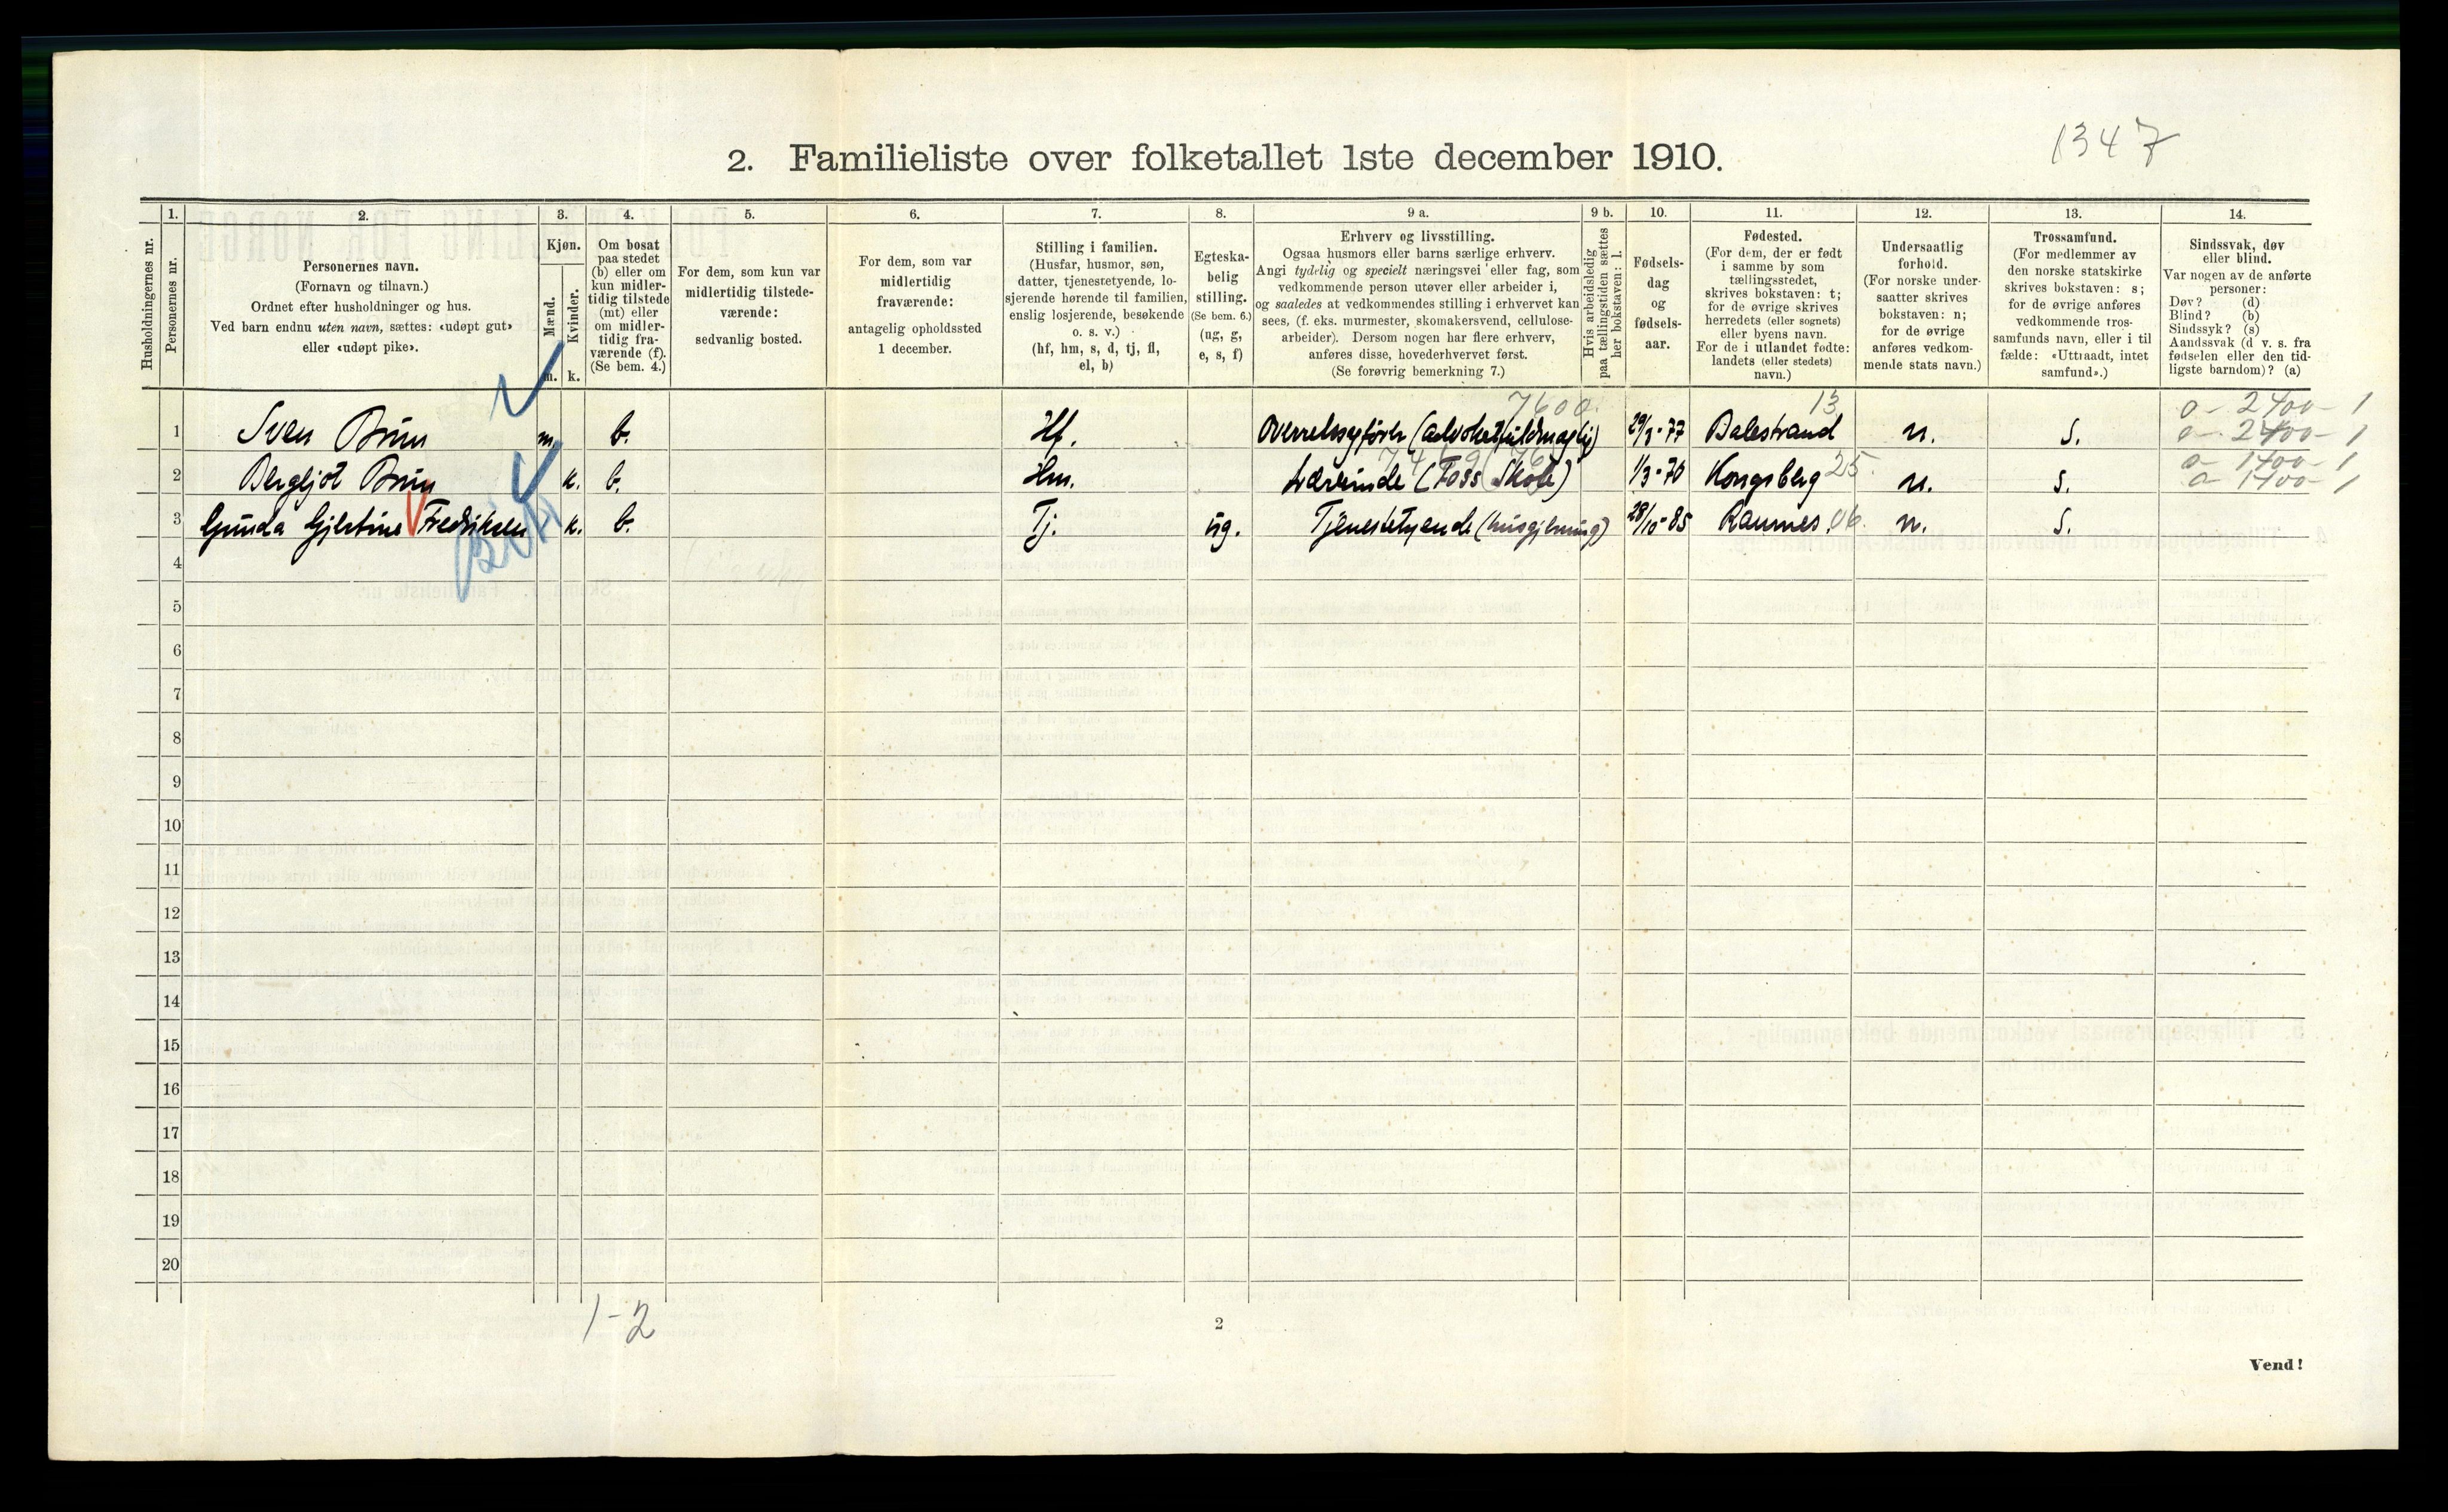 1347
2. Familieliste over folketallet 1ste december 1910.
Husholdningernes nr.
1.
Personernes nr.
2.
Personernes navn.
(Fornavn og tilnavn.)
Ordnet efter husholdninger og hus.
Ved barn endnu uten navn, sættes: «udøpt gut»
eller «udøpt pike».
3.
Kjøn.
Mænd.
Kvinder.
m.
k.
4.
Om bosat
paa stedet
(b) eller om
kun midler-
tidig tilstede
(mt) eller
om midler-
tidig fra-
værende (f).
(Se bem. 4.)
5.
For dem, som kun var
midlertidig tilstede-
værende:
sedvanlig bosted.
6.
For dem, som var
midlertidig
fraværende:
antagelig opholdssted
1 december.
7.
Stilling i familien.
(Husfar, husmor, søn,
datter, tjenestetyende, lo-
sjerende hørende til familien,
enslig losjerende, besøkende
o. s. v.)
(hf, hm, s, d, tj, fl,
el, b)
8.
Egteska-
belig
stilling.
(Se bem. 6.)
(ug, g,
e, s, f)
9 a.
Erhverv og livsstilling.
Ogsaa husmors eller barns særlige erhverv.
Angi tydelig og specielt næringsvei eller fag, som
vedkommende person utøver eller arbeider i,
og saaledes at vedkommendes stilling i erhvervet kan
sees, (f. eks. murmester, skomakersvend, cellulose-
arbeider). Dersom nogen har flere erhverv,
anføres disse, hovederhvervet først.
(Se forøvrig bemerkning 7.)
9 b.
Hvis arbeidsledig
paa tællingstiden sættes
her bokstaven: l.
10.
Fødsels-
dag
og
fødsels-
aar.
11.
Fødested.
(For dem, der er født
i samme by som
tællingsstedet,
skrives bokstaven: t;
for de øvrige skrives
herredets (eller sognets)
eller byens navn.
For de i utlandet fødte:
landets (eller stedets)
navn.)
12.
Undersaatlig
forhold.
(For norske under-
saatter skrives
bokstaven: n;
for de øvrige
anføres vedkom-
mende stats navn.)
13.
Trossamfund.
(For medlemmer av
den norske statskirke
skrives bokstaven: s;
for de øvrige anføres
vedkommende tros-
samfunds navn, eller i til
fælde: «Uttraadt, intet
samfund».)
14.
Sindssvak, døv
eller blind.
Var nogen av de anførte
personer:
Døv? (d)
Blind? (b)
Sindssyk? (s)
Aandssvak (d v. s. fra
fødselen eller den tid-
ligste barndom)? (a)
7600. 13 a- 2400- 1
1 Sven Brun m. b. Hf. Overretssagfører (advokatfuldmægtig) 29/3-77 Balestrand n. s. a- 2400- 1
a- 1400- 1
2 Bergljot Brun k. b. Hm. Lærerinde (Foss Skole) 1/3-70 Kongsberg 25. n. s. a- 1400- 1
3 Gunda Gjertine Fredriksen k. b. Tj. ug. Tjenestetyende (husgjerning) 28/10-85 Raumnes 06. n. s.
4
5
6
7
8
9
10
11
12
13
14
15
16
17
18
19
20
1-2
2
Vend!